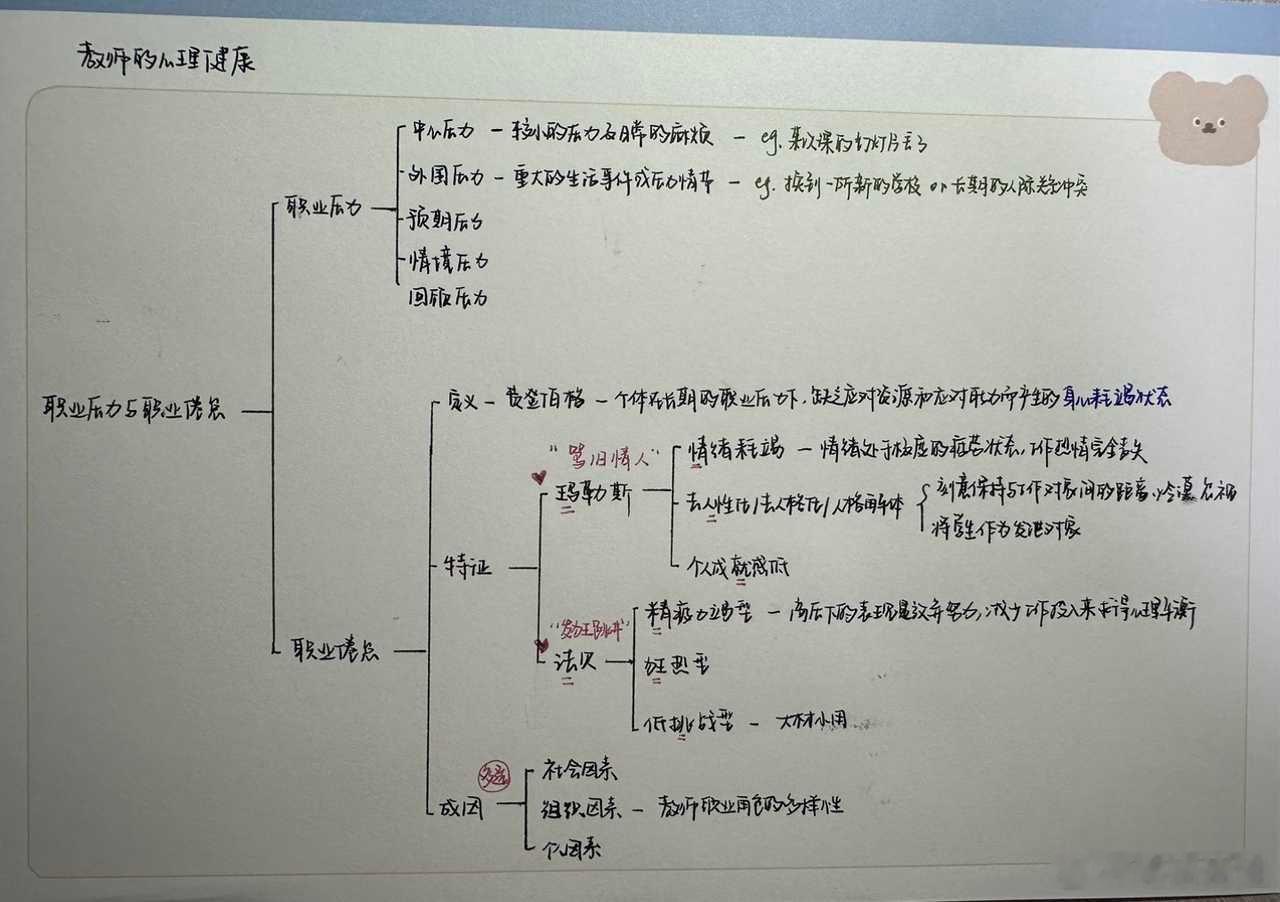 教师的心理健康
职业压力
中心压力 — 较小的压力及日常的麻烦 — eg. 某次课的幻灯片丢了
外围压力 — 重大的生活事件或压力情节 — eg. 换到一所新的学校 or 长期的人际关系冲突
预期压力
情境压力
回顾压力
职业压力与职业倦怠
职业倦怠
定义 — 费登伯格 — 个体在长期的职业压力下, 缺乏应对资源和应对能力而产生的身心耗竭状态
特征
"骂旧情人"
玛勒斯
情绪耗竭 — 情绪处于极度的疲劳状态, 工作热情完全丧失
去人性化/去人格化/人格解体
刻意保持与工作对象间的距离, 冷漠忽视
将学生作为发泄对象
个人成就感低
法贝
精疲力竭型 — 高压下的表现是放弃努力, 减少工作投入来求得心理平衡
狂热型
低挑战型 — 大材小用
成因
多选
社会因素
组织因素 — 教师职业角色的多样性
个人因素